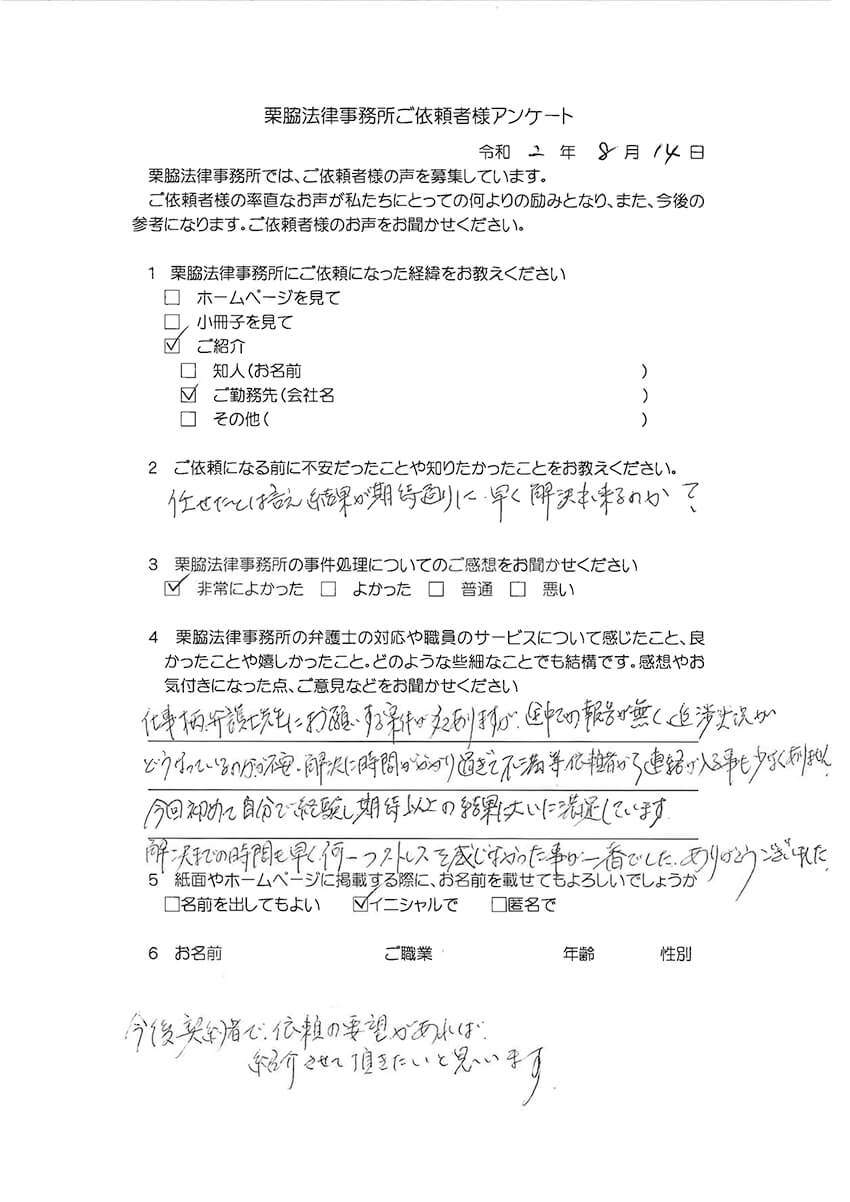 栗脇法律事務所ご依頼者様アンケート
令和 2 年 8 月 14 日
栗脇法律事務所では、ご依頼者様の声を募集しています。
ご依頼者様の率直なお声が私たちにとっての何よりの励みとなり、また、今後の
参考になります。ご依頼者様のお声をお聞かせください。
1 栗脇法律事務所にご依頼になった経緯をお教えください
□ ホームページを見て
□ 小冊子を見て
☑ ご紹介
□ 知人(お名前 )
☑ ご勤務先(会社名 )
□ その他( )
2 ご依頼になる前に不安だったことや知りたかったことをお教えください。
任せたとは言え結果が期待通りに、早く解決出来るのか?
3 栗脇法律事務所の事件処理についてのご感想をお聞かせください
☑ 非常によかった □ よかった □ 普通 □ 悪い
4 栗脇法律事務所の弁護士の対応や職員のサービスについて感じたこと、良
かったことや嬉しかったこと。どのような些細なことでも結構です。感想やお
気付きになった点、ご意見などをお聞かせください
仕事柄、弁護士先生にお願いする案件が多々ありますが、途中での報告が無く、進渉状況が
どうなっているのかが不安、解決に時間がかかり過ぎて不満等依頼者から連絡が入る事も少なくありません。
今回初めて自分で経験し期待以上の結果に大いに満足しています。
解決までの時間も早く、何一つストレスを感じなかった事が一番でした。ありがとうございました。
5 紙面やホームページに掲載する際に、お名前を載せてもよろしいでしょうか
□名前を出してもよい ☑イニシャルで □匿名で
6 お名前 ご職業 年齢 性別
今後契約者で、依頼の要望があれば、
紹介させて頂きたいと思います。